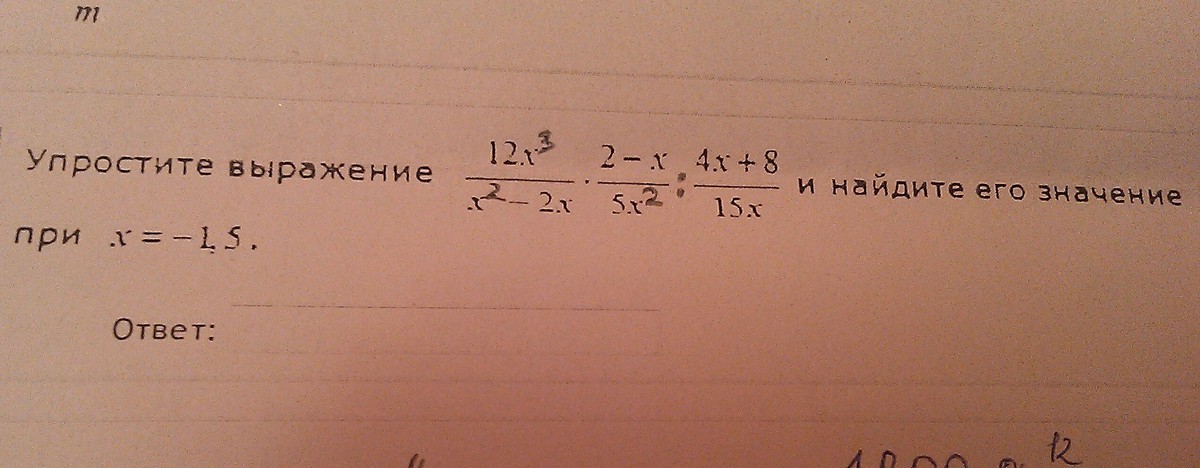 m
Упростите выражение 12x³/(x² − 2x) · (2 − x)/(5x²) : (4x + 8)/(15x) и найдите его значение
при x = −1,5.
Ответ:
12